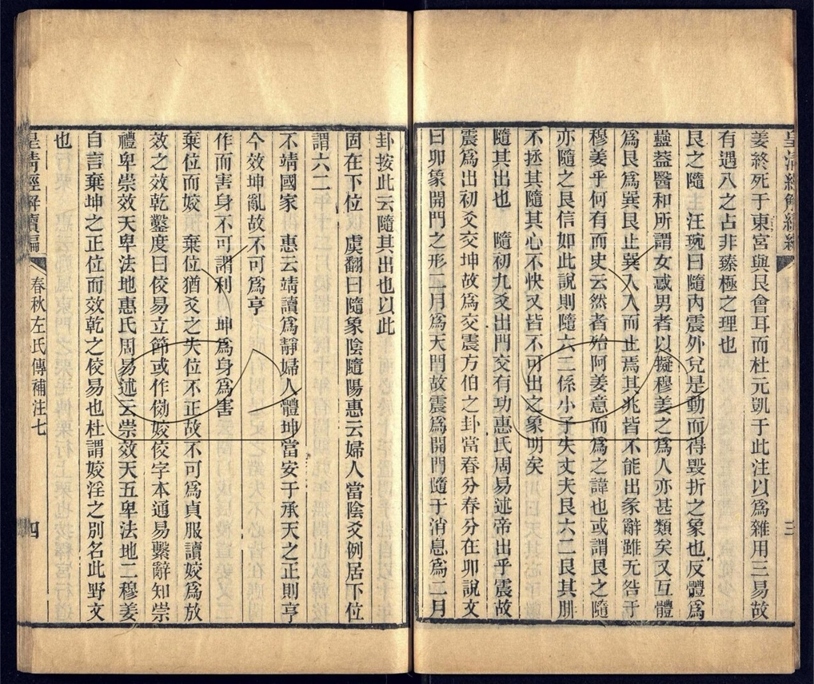 皇清經解續編
三
姜終死于東宮與艮會耳而杜元凱于此注以爲雜用三易故
有遇八之占非臻極之理也
艮之隨　汪琬曰隨內震外兌是動而得毀折之象也反體爲
蠱蓋醫和所謂女惑男者以擬穆姜之爲人亦甚類矣又互體
爲艮爲巽艮止巽入入而止焉其兆皆不能出彖辭雖无咎于
穆姜乎何有而史云然者殆阿姜意而爲之諱也或謂艮之隨
亦隨之艮信如此說則隨六二係小子失丈夫艮六二艮其腓
不拯其隨其心不快又皆不可出之象明矣
隨其出也　隨初九爻出門交有功惠氏周易述帝出乎震故
震爲出初爻交坤故爲交震方伯之卦當春分春分在卯說文
曰卯象開門之形二月爲天門故震爲開門隨于消息爲二月
卦按此云隨其出也以此
固在下位　虞翻曰隨象陰隨陽惠云婦人當陰爻例居下位
謂六二
不靖國家　惠云靖讀爲靜婦人體坤當安于承天之正則亨
今效坤亂故不可爲亨
作而害身不可謂利　坤爲身爲害
棄位而姣　棄位猶爻之失位不正故不可爲貞服讀姣爲放
效之效乾鑿度曰佼易立節或作㑾姣佼字本通易繫辭知崇
禮卑崇效天卑法地惠氏周易述云崇效天五卑法地二穆姜
自言棄坤之正位而效乾之佼易也杜謂姣淫之別名此野文
也
皇清經解續編
春秋左氏傳補注七
四